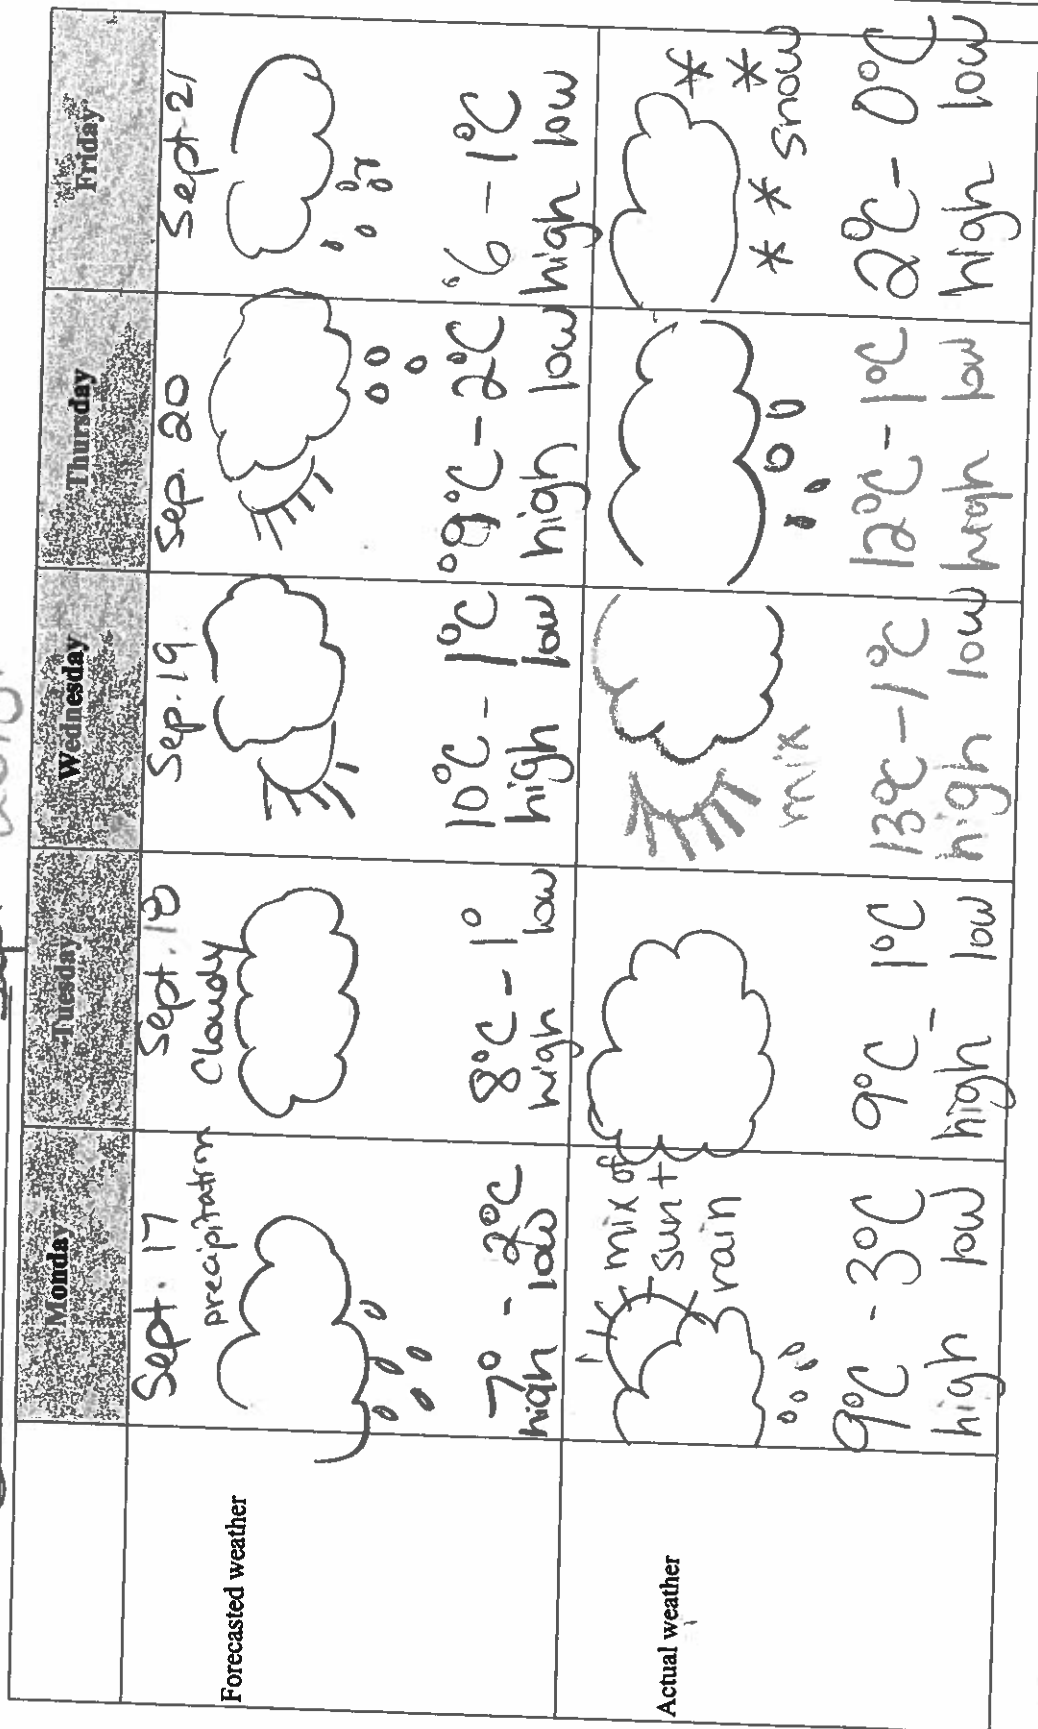 Monday
Tuesday
Wednesday
Thursday
Friday
Forecasted weather
Sept. 17
precipitation
7° - 2°C
high low
Sept. 18
Cloudy
8°C - 1°
high low
Sep. 19
10°C - 1°C
high low
Sep. 20
9°C - 2°C
high low
Sept 21
6 - 1°C
high low
Actual weather
mix of
sun +
rain
9°C - 3°C
high low
9°C - 1°C
high low
mix
13°C - 1°C
high low
12°C - 1°C
high low
snow
2°C - 0°C
high low